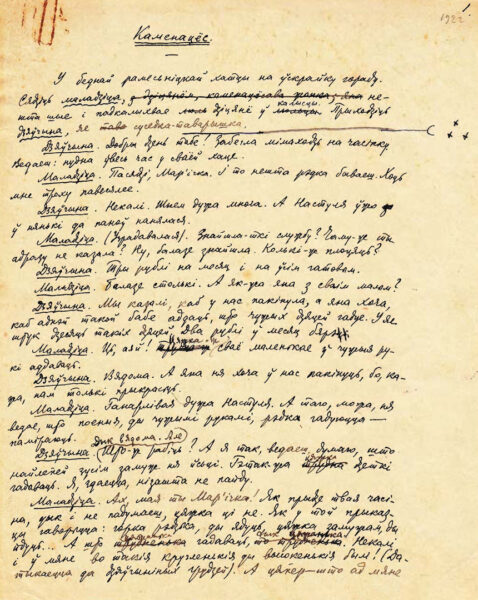 1922
Каменацёс.
У беднай рамесьніцкай хатцы на ўскрайку гораду.
Сядзіць маладзіца, з дзіцянём, каменацёсава жонка, яна не-
шта шые і падкалыхвае дзіцянё ў калысцы. Прыходзіць
дзяўчына, яе суседка-таварышка.
Дзяўчына. Добры дзень табе! Забегла мімаходзь на часінку
Ведаеш: нудна ўвесь час у сваёй хаце.
Маладзіца. Пасядзі, Мар'ічка. І то нешта рэдка бываеш. Хоць
мне троху павесялее.
Дзяўчына. Некалі. Шыем дужа многа. А Настуля ўжо
ў нянькі да паноў нанялася.
Маладзіца. (Узрадавалася). Знайшла-ткі службу? Чаму-ж ты
адразу не казала? Ну, балазе знайшла. Колькі-ж плоцяць?
Дзяўчына. Тры рублі на месяц і на ўсім гатовым.
Маладзіца. Балазе столькі. А як-жа яна з сваім малым?
Дзяўчына. Мы казалі, каб у нас пакінула, а яна хоча,
каб аднэй такой бабе аддаць, што чужых дзяцей гадуе. У яе
штук дзесяць такіх дзяцей. Два рублі ў месяц бярэ
Маладзіца. Ці, ай! Цяжка-ж сваё маленькае ў чужыя ру-
кі аддаваць.
Дзяўчына. Вядома. А яна ня хоча ў нас пакінуць, бо, ка-
жа, нам толькі прыкрасьць.
Маладзіца. Ганарлівая дужа Настуля. А таго, можа, ня
ведае, што дзеткі, ды чужымі рукамі, рэдка гадуюцца —
паміраюць.
Дзяўчына. Дык вядома. Што-ж рабіць? А я так, ведаеш, думаю, што
найлепей зусім замуж ня ісьці. Гэтак-жа цяжка дзеткі
гадаваць. Я, здаецца, нізашта не пайду.
Маладзіца. Ах, мая ты Мар'ічка! Як прыдзе твая часі-
на, дык і не падумаеш, цяжка ці не. Як у той прыказ-
цы гаворыцца: горка рэдзька, ды ядуць, цяжка замужам, ды
йдуць. А што гадаваць, Некалі
і ў мяне во такія кругленькія ды высокенькія былі! (Да-
тыкаецца да дзяўчыніных грудзей). А цяпер — што ад мяне